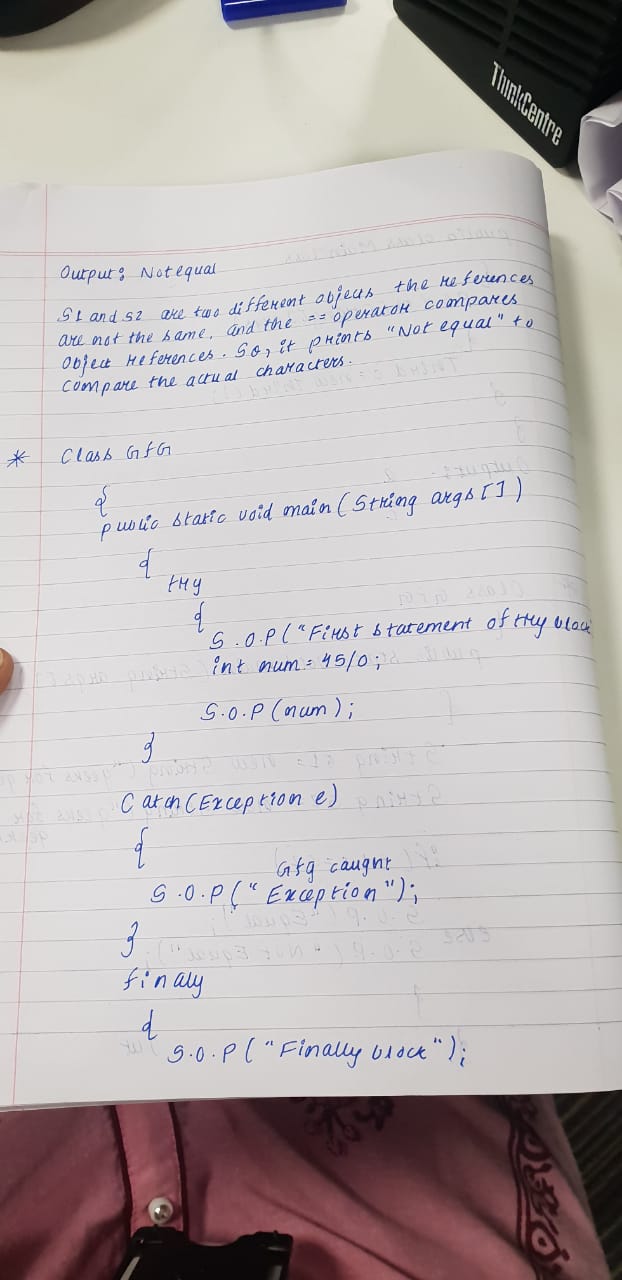 ThinkCentre
Output: Not equal
S1 and S2 are two different objects the references
are not the same, and the == operator compares
object references. So, it prints "Not equal" to
compare the actual characters.
* Class GfG
{
public static void main(String args[])
{
try
{
S.O.P("First statement of try block
int num = 45/0;
S.O.P(num);
}
Catch(Exception e)
{
Gfg caught
S.O.P("Exception");
}
finaly
{
S.O.P("Finally block");